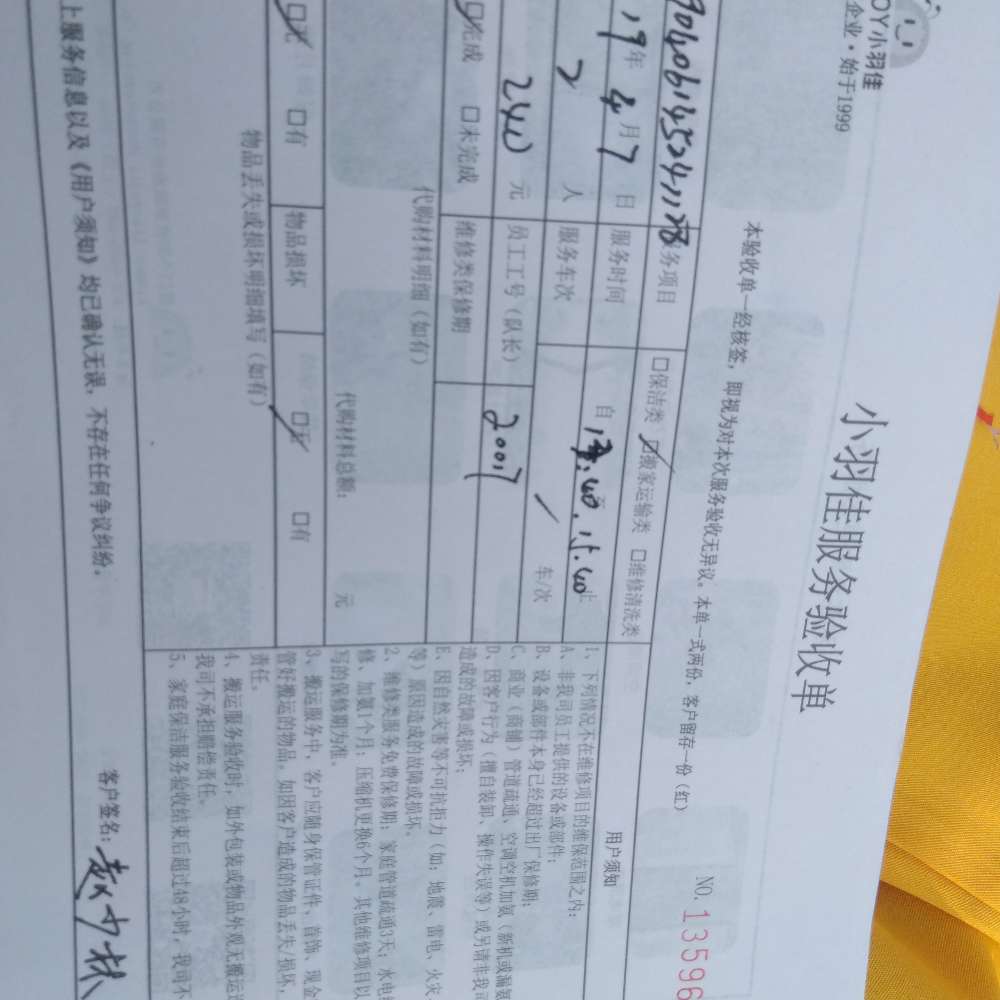 OY小羽佳
企业·始于1999
小羽佳服务验收单
本验收单一经核签，即视为对本次服务验收无异议。本单一式两份，客户留存一份（红）
NO.13596
务项目 □保洁类 □搬家运输类 □维修清洗类
用户须知
19年4月7日 服务时间 自 15.40止
2人 服务车次 / 车/次
240元 员工工号（队长） 20017
□完成 □未完成 维修类保修期
代购材料明细（如有）
代购材料总额： 元
□无 □有 物品损坏 □无 □有
物品丢失或损坏明细填写（如有）
1、下列情况不在维修项目的维保范围之内：
A、非我司员工提供的设备或部件；
B、设备或部件本身已经超过出厂保修期；
C、商业（商铺）管道疏通、空调空机加氨（新机或漏氨
D、因客户行为（擅自装卸、操作失误等）或另请非我司
造成的故障或损坏；
E、因自然灾害等不可抗拒力（如：地震、雷电、火灾
等）原因造成的故障或损坏。
2、维修类服务免费保修期：家庭管道疏通3天；水电维
修、加氨1个月；压缩机更换6个月。其他维修项目以
写的保修期为准。
3、搬运服务中，客户应随身保管证件、首饰、现金
管好搬运的物品。如因客户造成的物品丢失/损坏，
责任。
4、搬运服务验收时，如外包装或物品外观无搬运
我司不承担赔偿责任。
5、家庭保洁服务验收结束后超过48小时，我司不
上服务信息以及《用户须知》均已确认无误，不存在任何争议纠纷。
客户签名：